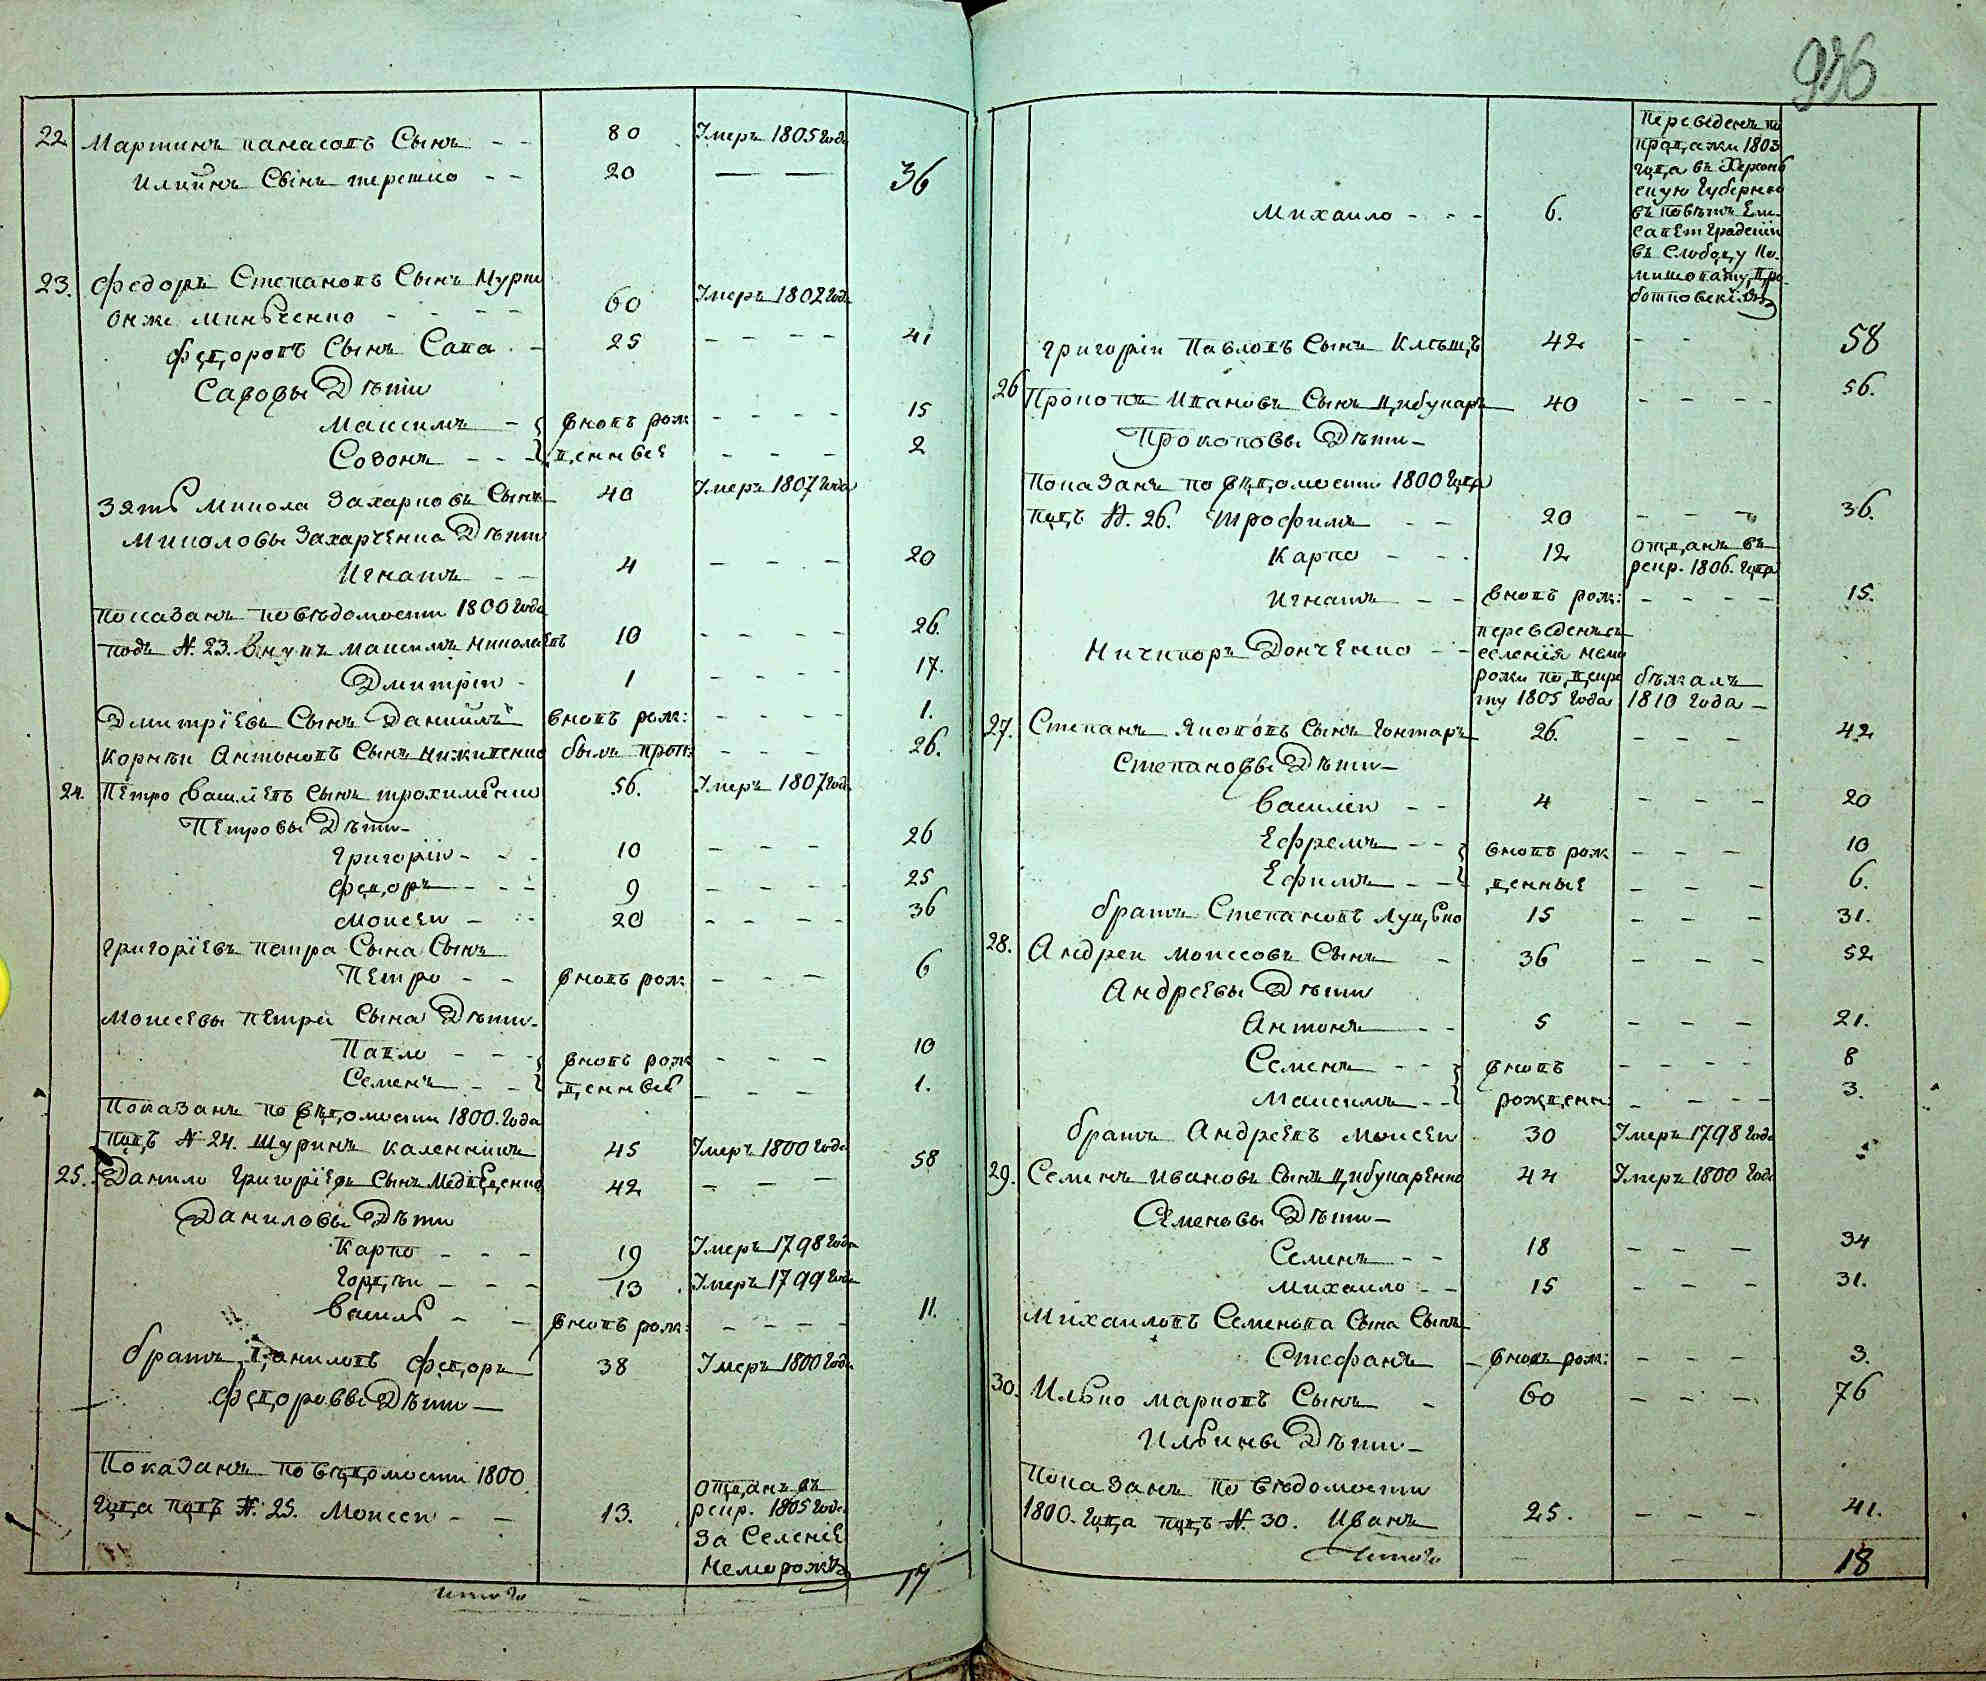 976
22 Мартинъ панасовъ Сынъ - - 80 Умеръ 1805 года
Илиинъ Сынъ терешко - - 20 — — 36
23. Федоръ Степановъ Сынъ
онже Минченко - - - - 60 Умеръ 1802 года
Федоровъ Сынъ Сава - 25 - - - - 41
Савовы Дѣти
Максимъ - вновь рож - - - - 15
Созонъ - - - денные - - - 2
Зять Микола Захарковъ Сынъ 40 Умеръ 1807 года
Миколовы Захарченка Дѣти
Игнатъ - - 4 - - - 20
Показанъ по вѣдомости 1800 года
подъ N. 23. внукъ Максимъ Николаевъ 10 - - - - 26.
Дмитрій - 1 - - - - 17.
Дмитріевъ Сынъ Даниилъ вновь рож: - - - - 1.
Корнѣй Антоновъ Сынъ Никитенко былъ проп: - - - 26.
24. Петро Василіевъ Сынъ трохименко 56. Умеръ 1807 года
Петровы Дѣти -
Григорій - - - 10 - - - - 26
Федоръ - - - 9 - - - - 25
Моисей - - - 20 - - - - 36
Григоріевъ Петра Сына Сынъ
Петро - - вновь рож: - - - 6
Моисеевы Петра Сына Дѣти -
Павло - - - вновь рож - - - 10
Семенъ - - денные - - - 1.
Показанъ по вѣдомости 1800. года
подъ N 24. Шуринъ Каленникъ 45 Умеръ 1800 года
25. Данило Григоріевъ Сынъ Медведенко 42 - - - 58
Даниловы Дѣти
Карпо - - - 19 Умеръ 1798 года
Гордѣй - - - 13 Умеръ 1799 года
Василь - - вновь рож: - - - - 11.
братъ Даниловъ Федоръ 38 Умеръ 1800 года
Федоровы Дѣти —
Показанъ по вѣдомости 1800.
года подъ N. 25. Моисей - - 13. отданъ въ
рекр. 1805 года
За Селеніе
Неморожъ
итого - 17
Переведенъ по
продажи 1803
года въ Херсон
скую Губернію
въ повѣтъ Ели
саветградскій
въ Слободу По
мишовату
Михаило - - - 6.
Григорій Павловъ Сынъ 42 - - 58
26 Прокопъ Ивановъ Сынъ Цибукаръ 40 - - - - 56.
Прокоповы Дѣти -
Показанъ по вѣдомости 1800 года
подъ N. 26. Трофимъ - - 20 - - - 36.
Карпо - - - 12 отданъ въ
рекр. 1806. года
Игнатъ - - вновь рож: - - - - 15.
Ничипоръ Донченко - - переведенъ съ
селенія Немо
рожи по декре
ту 1805 года бѣжалъ
1810 года -
27. Степанъ Яковъ Сынъ Гонтаръ 26. - - - 42
Степановы Дѣти -
Василій - - 4 - - - 20
Ефремъ - - вновь рож - - - 10
Ефимъ - - денные - - - 6.
братъ Степановъ Луцько 15 - - - 31.
28. Андрей Моисеовъ Сынъ - 36 - - - 52
Андреевы Дѣти
Антонъ - - 5 - - - 21.
Семенъ - - вновь - - - - 8
Максимъ - - рожденн - - - - 3.
братъ Андреевъ Моисей 30 Умеръ 1798 года
29. Семенъ Ивановъ Сынъ Цибукаренко 44 Умеръ 1800 года
Семеновы Дѣти -
Семенъ - - 18 - - - 34
Михаило - - 15 - - - 31.
Михаиловъ Семенова Сына Сынъ
Стефанъ - вновь рож: - - - 3.
30. Илько Марковъ Сынъ - 60 - - - 76
Илькины Дѣти -
Показанъ по вѣдомости
1800. года подъ N. 30. Иванъ 25. - - - 41.
Итого - - 18